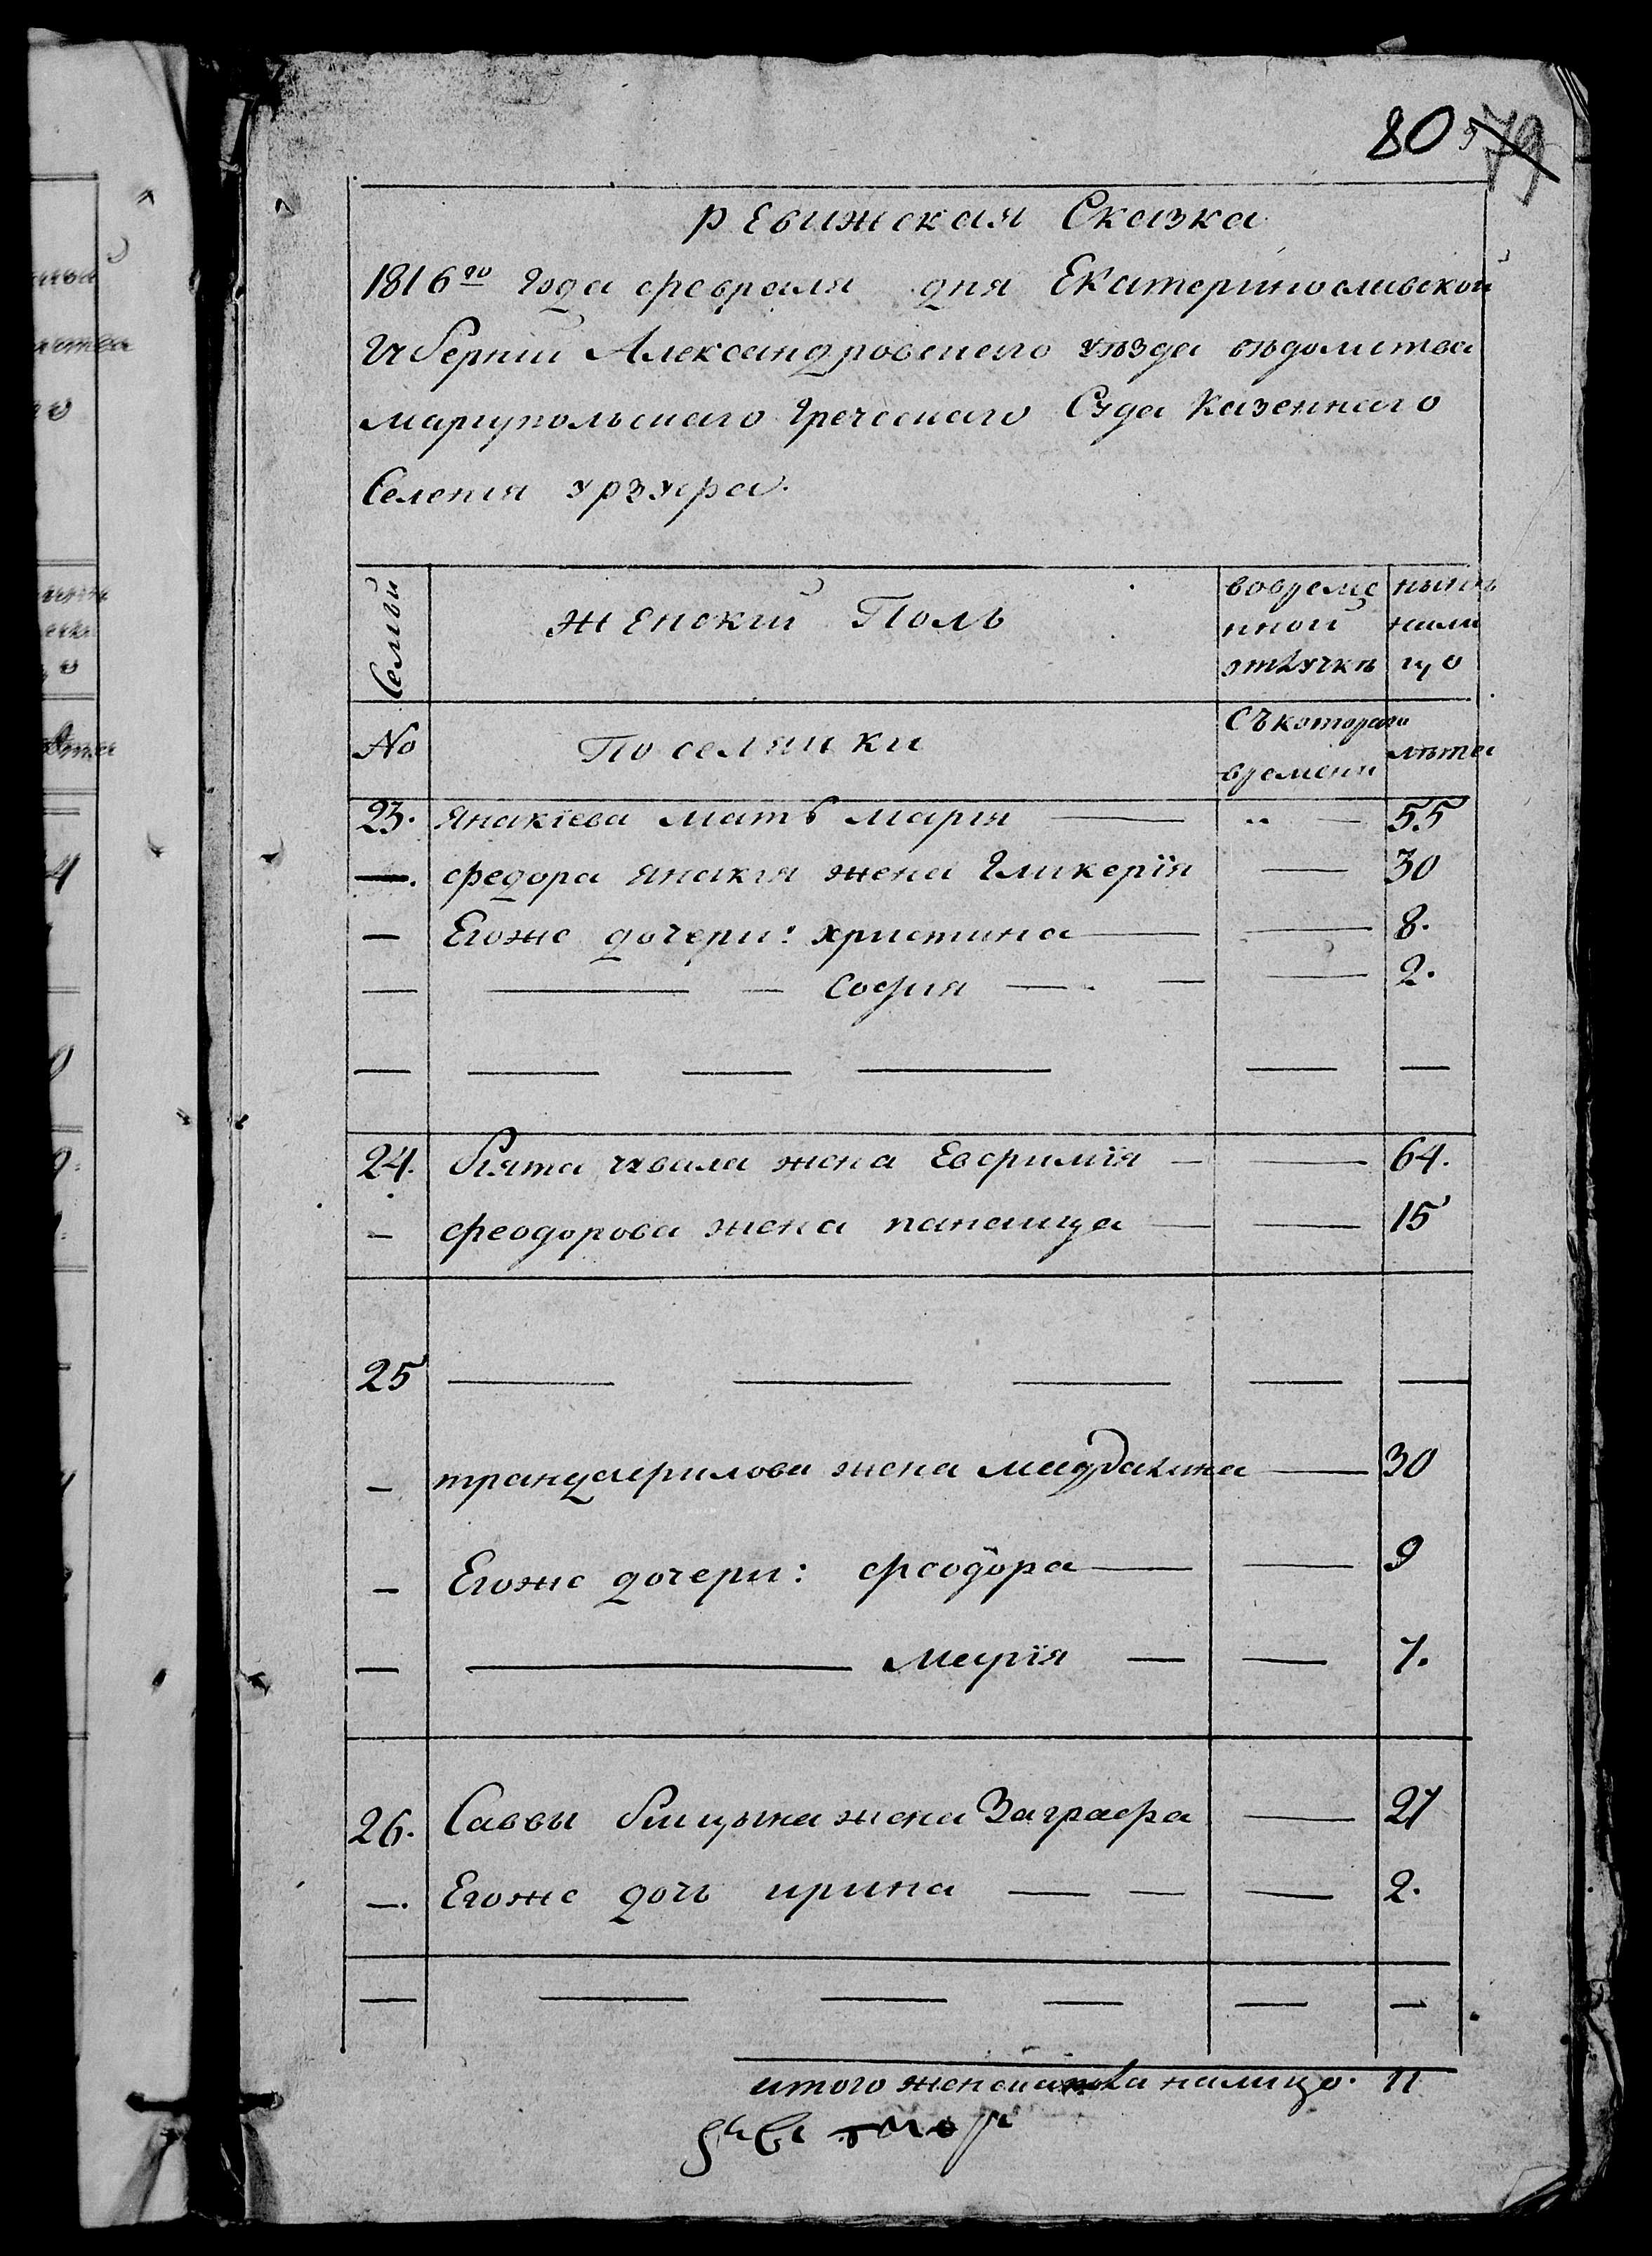 80 79
Ревижская Сказка
1816го Года февраля дня Екатеринославской
Губернии Александровского уѣзда вѣдомства
Мариупольскаго Греческаго Суда Казеннаго
Селения Урзуфа.
Семьи
Женскій Полъ
вовреме
нной
отлучкѣ
нынѣ
нали
цо
No
Поселянки
Съ котораго
времени
лѣта
23. Янакіева мать Марія — 55
— Федора Янакія жена Гликерія — 30
— Егоже дочери: Христина — 8.
— София — 2.
24. жена Евфимія — 64.
— Феодорова жена — 15
25
— трандафилова жена — 30
— Егоже дочери: Феодора — 9
— Марія — 7.
26. Саввы жена Заграфа — 27
— Егоже дочь ирина — 2.
итого женска пола налицо. 11